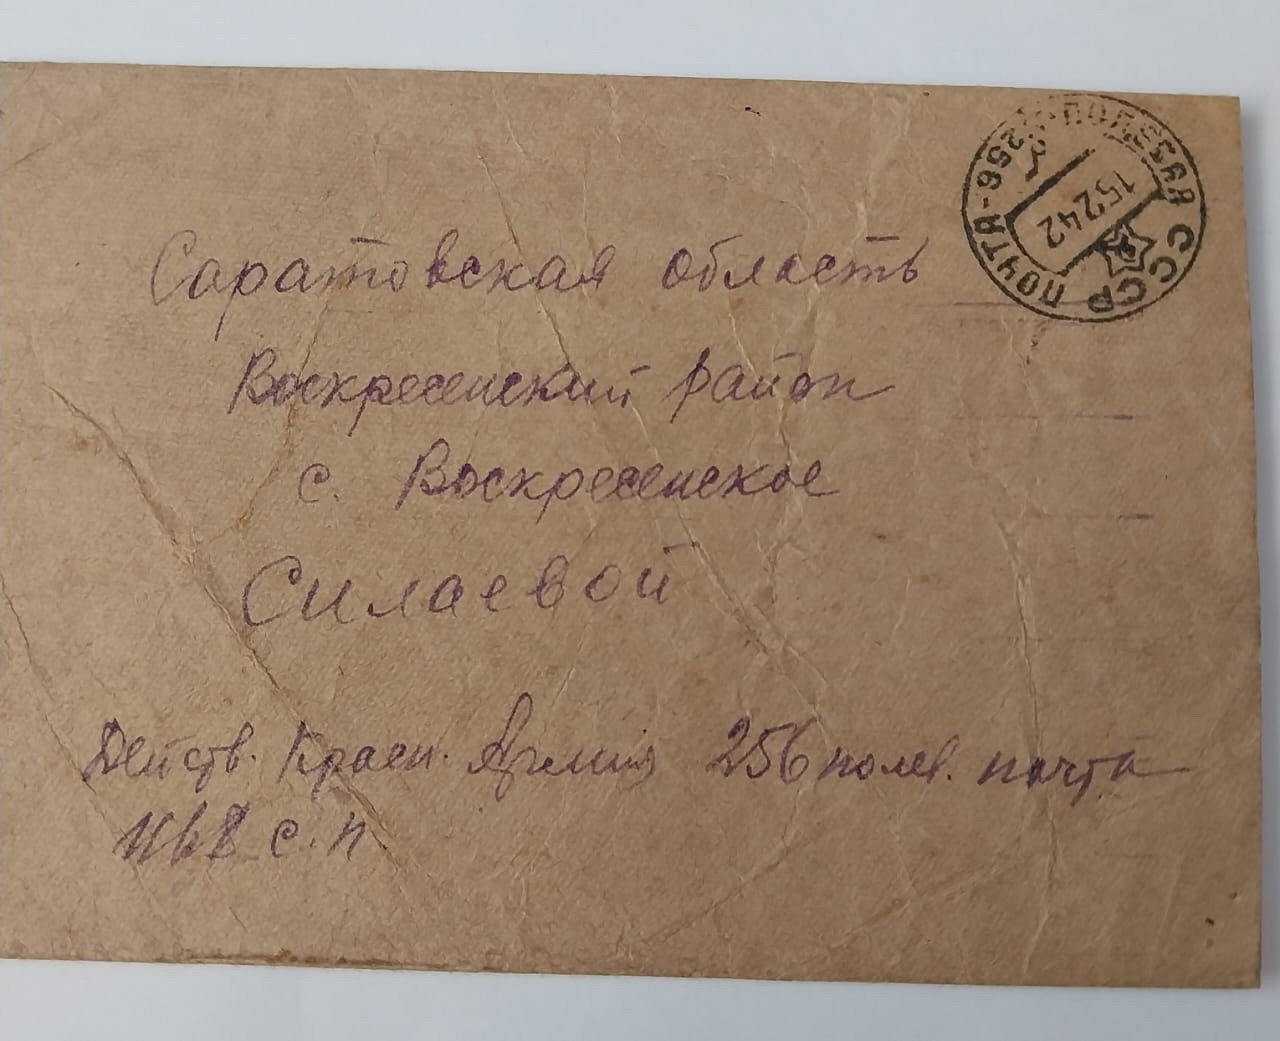 СССР ПОЛЕВАЯ ПОЧТА-256
15 2 42
Саратовская область
Воскресенский район
с. Воскресенское
Силаевой
Действ. Красн. Армия 256 полев. почта
с.п